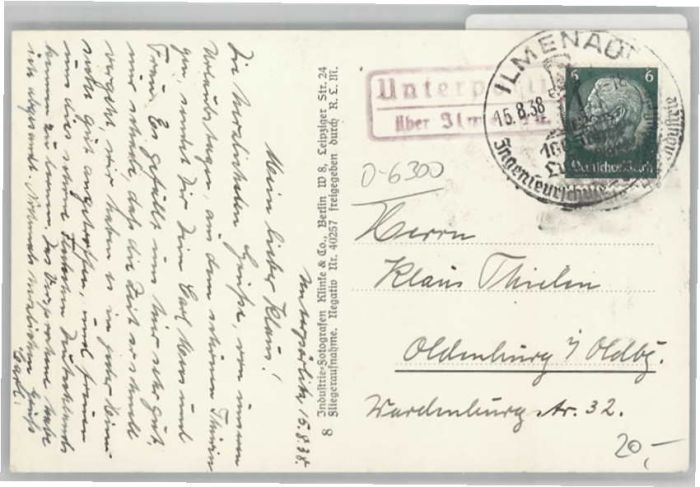 Unterpörlitz, 15.8.38.
Mein lieber Klaus!
Die herzlichsten Grüße, von unseren
Urlaubstagen, aus dem schönen Thürin
gen, sendet Dir Dein Carl Hans und
Frau. Es gefällt uns hier sehr gut,
nur schade daß die Zeit so schnell
vergeht, wir haben es in jeder
sehr gut angetroffen, und freuen
uns dies schöne Deutschlands
kennen zu lernen. Das habe
ich abgesandt. Nochmals herzlichen Gruß
Carl.
8 Industrie-Fotografen Klinke & Co., Berlin W 8, Leipziger Str. 24
Fliegeraufnahme. Negativ Nr. 40257 freigegeben durch R. L. M.
Unterp
über Ilm
ILMENAU
15.8.38
Ingenieurschule
6 6
Deutsches Reich
D-6300
Herrn
Klaus Thielen
Oldenburg i/Oldbg.
Wardenburg str. 32.
20,-